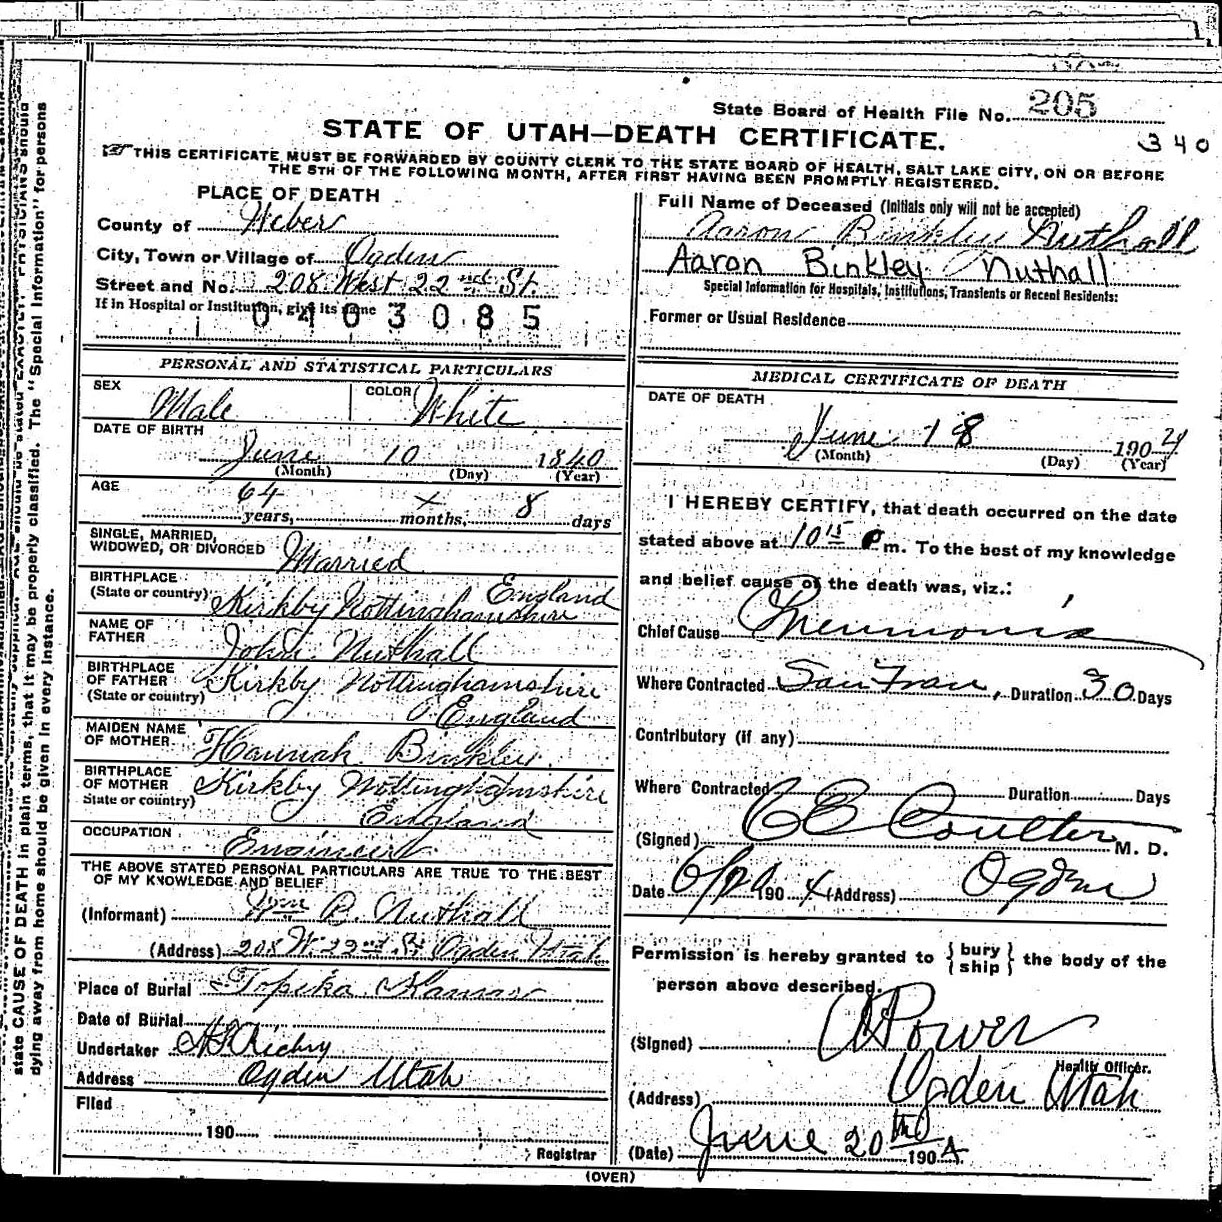 State Board of Health File No. 205
340
STATE OF UTAH—DEATH CERTIFICATE.
THIS CERTIFICATE MUST BE FORWARDED BY COUNTY CLERK TO THE STATE BOARD OF HEALTH, SALT LAKE CITY, ON OR BEFORE
THE 5TH OF THE FOLLOWING MONTH, AFTER FIRST HAVING BEEN PROMPTLY REGISTERED.
PLACE OF DEATH
County of Weber
City, Town or Village of Ogden
Street and No. 208 West 22nd St.
If in Hospital or Institution, give its name
0403085
Full Name of Deceased (Initials only will not be accepted)
Aaron Binkley Nuthall
Aaron Binkley Nuthall
Special Information for Hospitals, Institutions, Transients or Recent Residents:
Former or Usual Residence
PERSONAL AND STATISTICAL PARTICULARS
SEX Male COLOR White
DATE OF BIRTH
June 10 1840
(Month) (Day) (Year)
AGE
64 years, x months, 8 days
SINGLE, MARRIED,
WIDOWED, OR DIVORCED Married
BIRTHPLACE England
(State or country) Kirkby Nottinghamshire
NAME OF
FATHER John Nuthall
BIRTHPLACE
OF FATHER Kirkby Nottinghamshire
(State or country) England
MAIDEN NAME
OF MOTHER Hannah Binkley
BIRTHPLACE
OF MOTHER Kirkby Nottinghamshire
State or country) England
OCCUPATION Engineer
THE ABOVE STATED PERSONAL PARTICULARS ARE TRUE TO THE BEST
OF MY KNOWLEDGE AND BELIEF
(Informant) Wm B. Nuthall
(Address) 208 W. 22nd St Ogden Utah
Place of Burial Topeka Kansas
Date of Burial
Undertaker
Address Ogden Utah
Filed
190
Registrar
MEDICAL CERTIFICATE OF DEATH
DATE OF DEATH
June 18 1904
(Month) (Day) (Year)
I HEREBY CERTIFY, that death occurred on the date
stated above at 10 15 P m. To the best of my knowledge
and belief cause of the death was, viz.:
Chief Cause Pneumonia
Where Contracted San Fran, Duration 30 Days
Contributory (if any)
Where Contracted Duration Days
(Signed) C E Coulter M. D.
Date 6/20 1904 (Address) Ogden
Permission is hereby granted to { bury
ship } the body of the
person above described.
(Signed) Power
Health Officer.
(Address) Ogden Utah
(Date) June 20th 1904
(OVER)
state CAUSE OF DEATH in plain terms, that it may be properly classified. The "Special Information" for persons
dying away from home should be given in every instance.